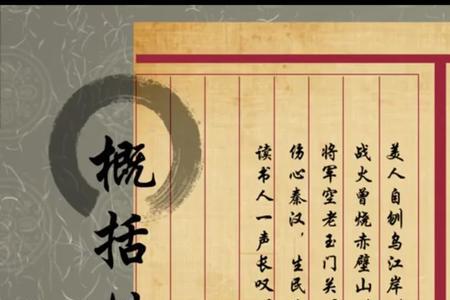 概括
美人自刎乌江岸
战火曾烧赤壁山
将军空老玉门关
伤心秦汉，生民
读书人一声长叹